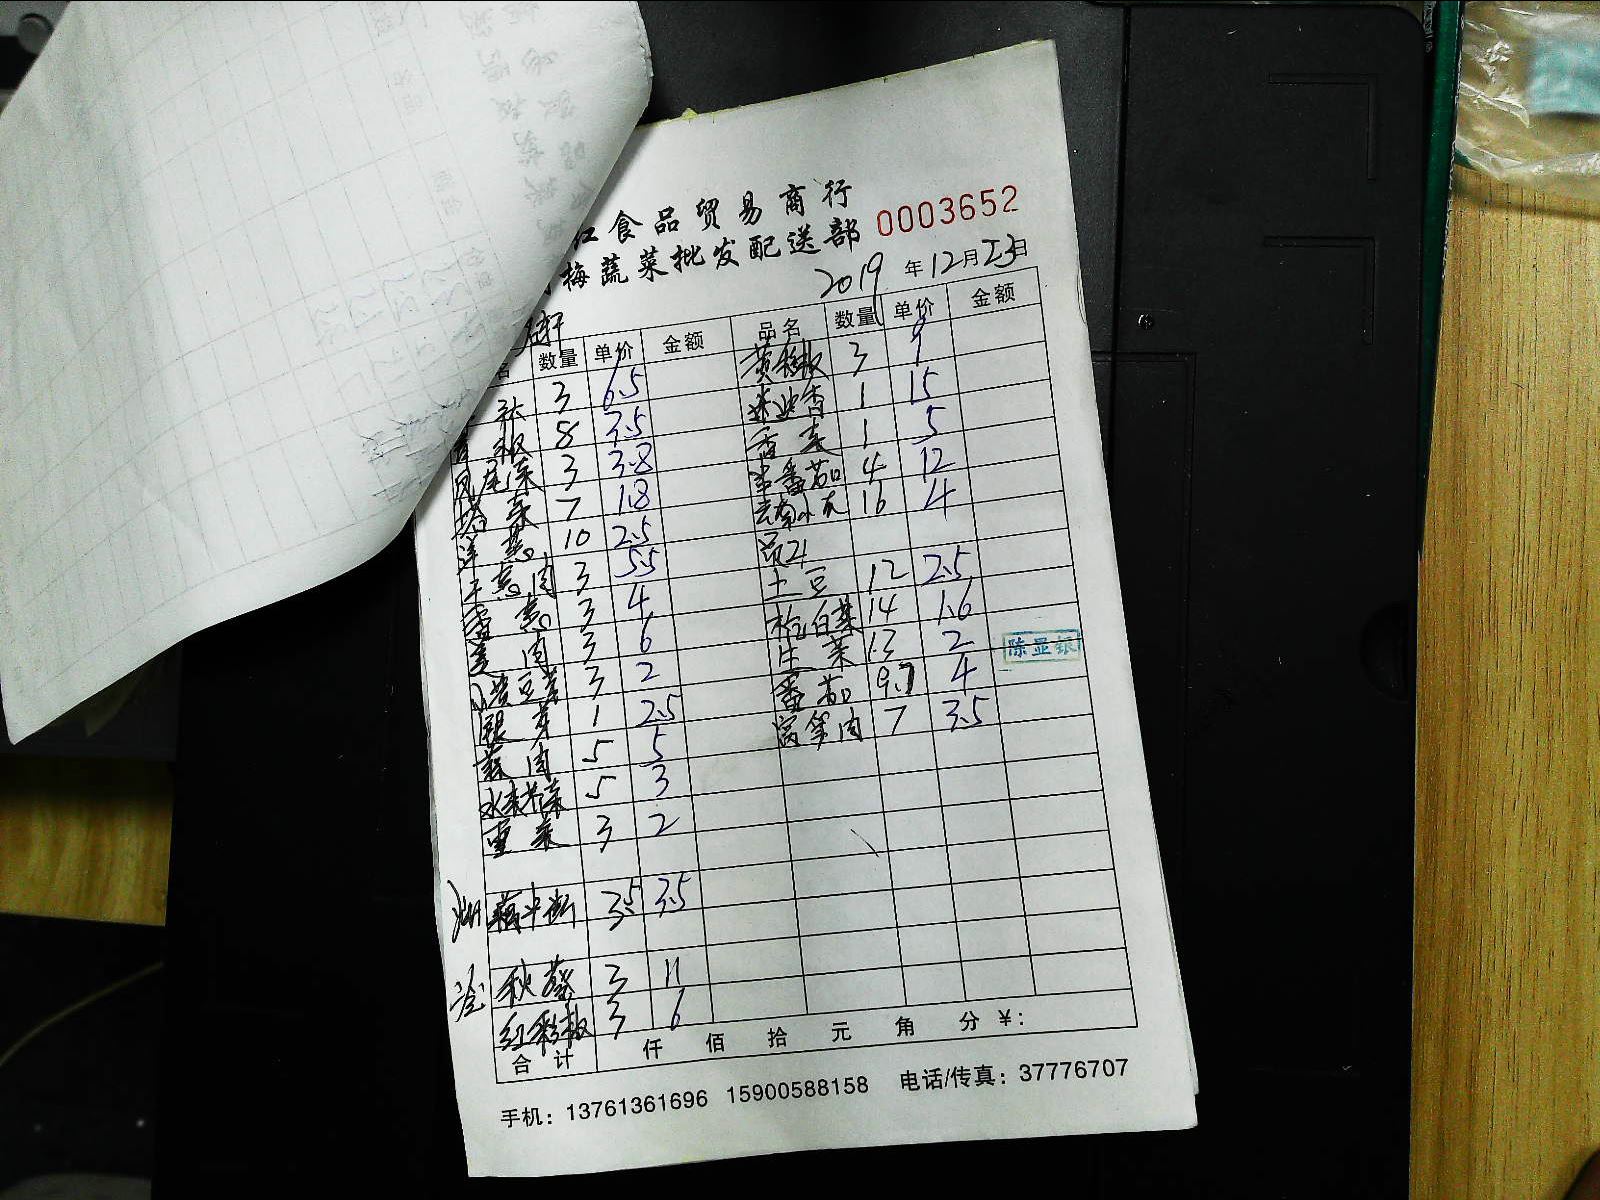 红食品贸易商行
梅蔬菜批发配送部 0003652
2019年12月23日
名 数量 单价 金额 品名 数量 单价 金额
3 6.5 黄彩椒 3 9
椒 8 3.5 迷迭香 1 15
凤尾菜 3 3.8 香菜 1 5
塔菜 7 1.8 圣番茄 4 12
洋葱 10 2.5 云南小瓜 16 4
京葱肉 3 5.5
香葱 3 4 土豆 12 2.5
姜肉 3 6 包白菜 14 1.6
小黄豆芽 3 2 生菜 13 2
银芽 1 2.5 番茄 9.7 4
蒜肉 5 5 莴笋肉 7 3.5
水 菜 5 3
菜 3 2
藕 3.5 3.5
秋葵 3 11
红彩椒 3 6
合计 仟 佰 拾 元 角 分 ¥:
手机: 13761361696 15900588158 电话/传真: 37776707
陈显银